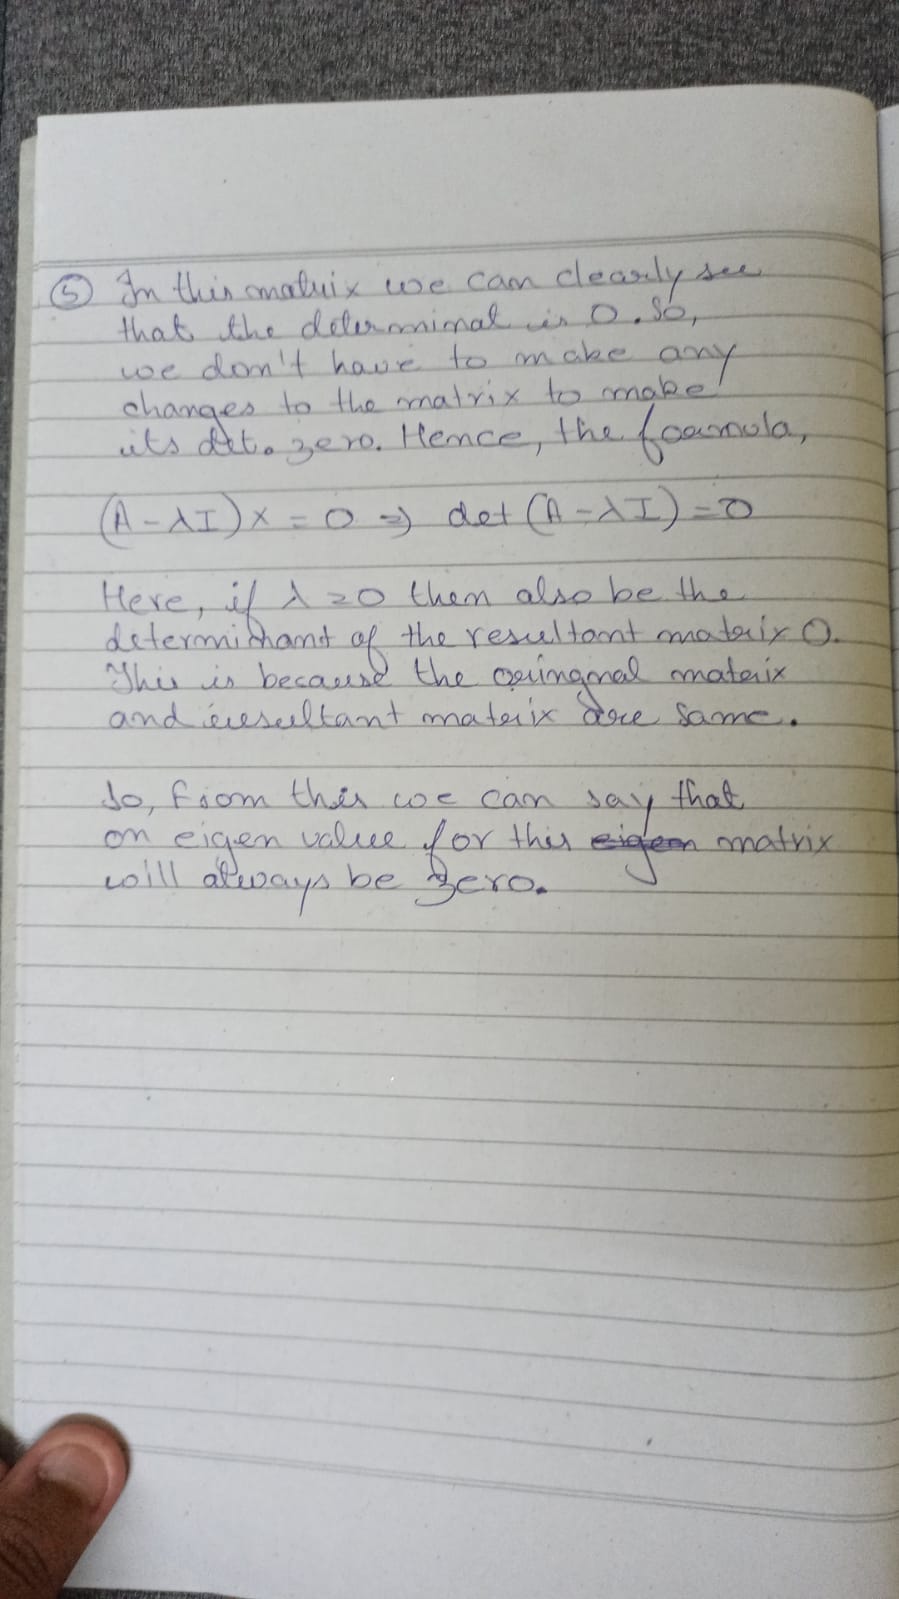 ⑤ In this matrix we can clearly see
that the determinal is 0. So,
we don't have to make any
changes to the matrix to make
its det. zero. Hence, the foamola,
(A-λI)x = 0 ⇒ det (A-λI)=0
Here, if λ=0 then also be the
determinant of the resultant matrix 0.
This is because the oringnal matrix
and resultant matrix are same.
So, from this we can say that
on eigen value for this eigen matrix
will always be zero.